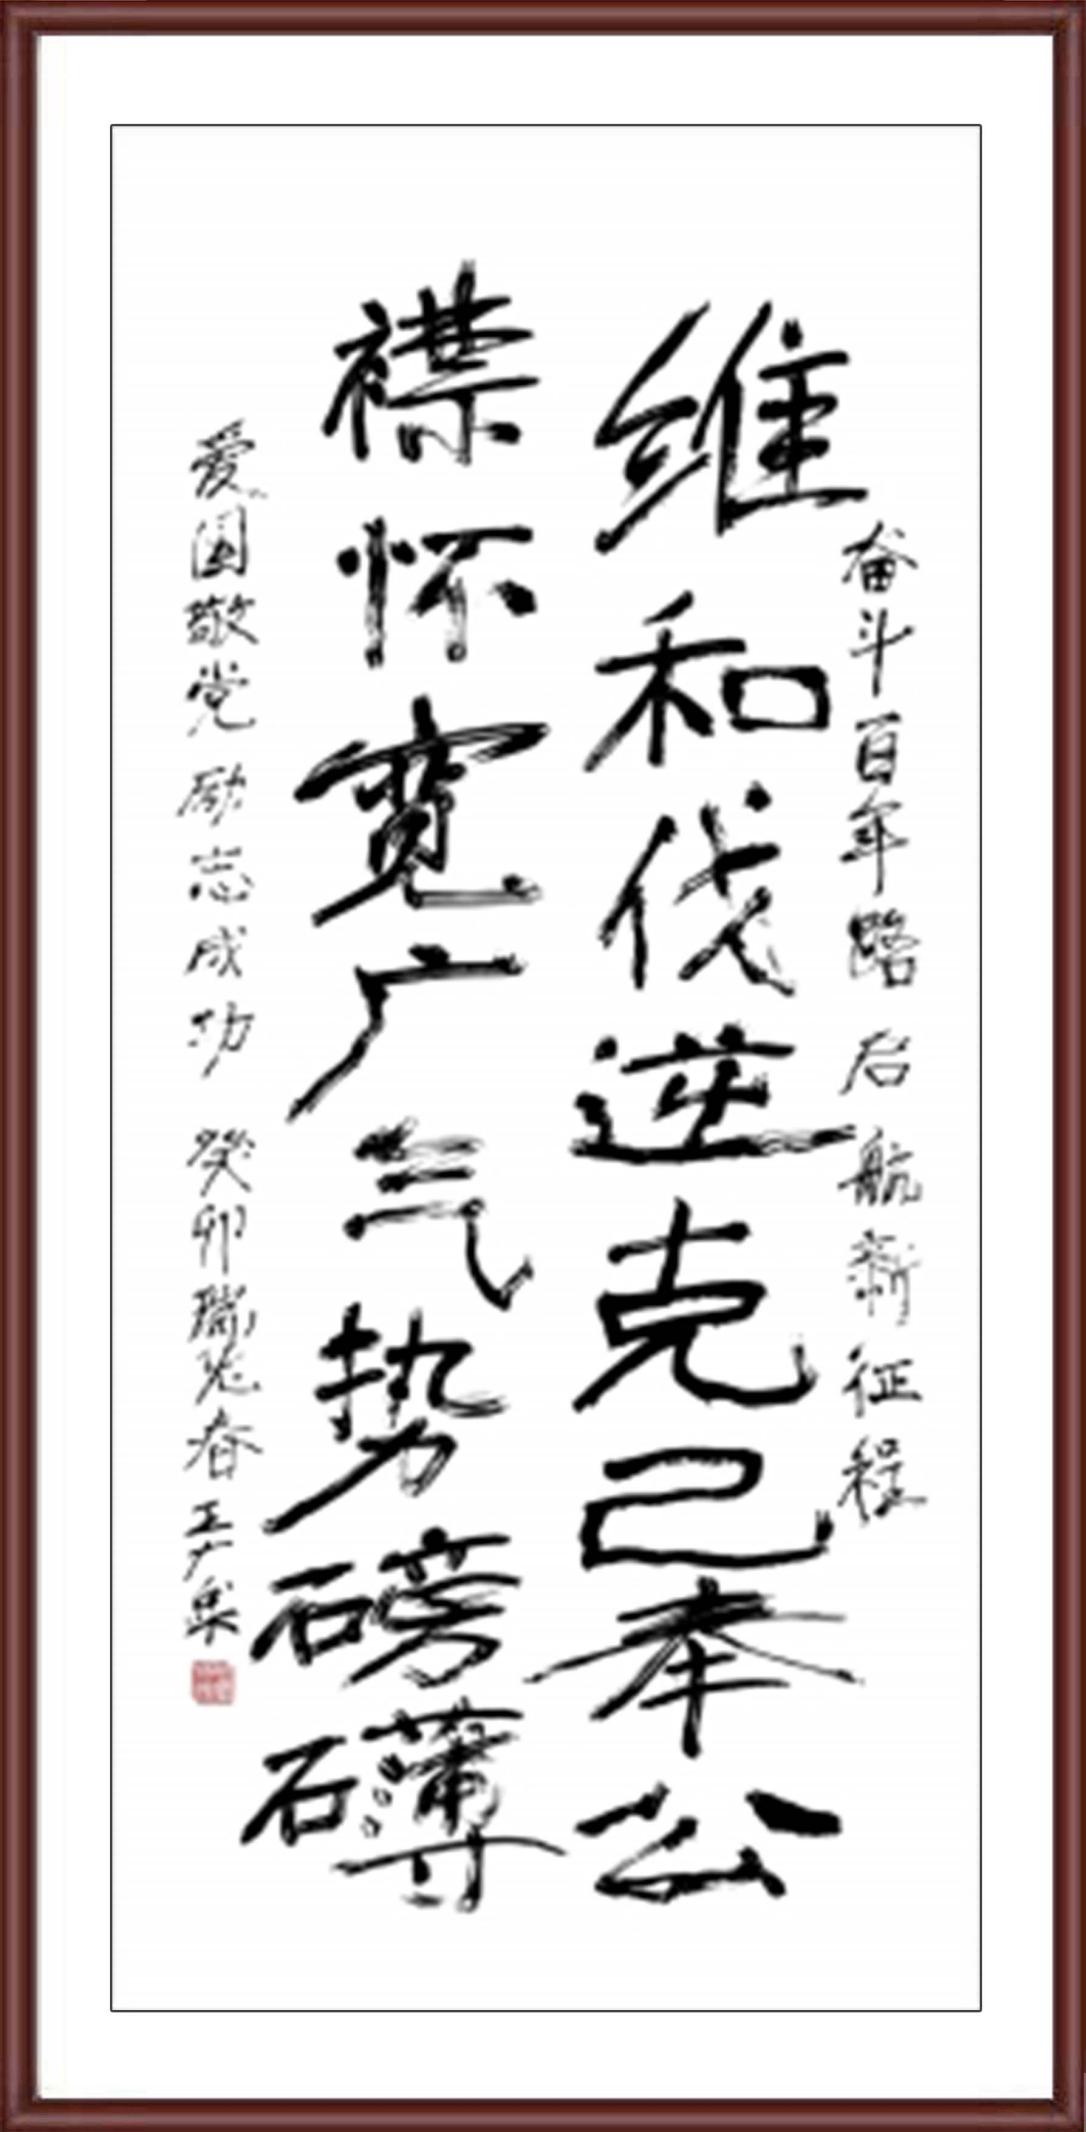 奋斗百年路 启航新征程
维和伐逆克己奉公
襟怀宽广气势磅礴
爱国敬党 励志成功 癸卯瑞兔春 王广集